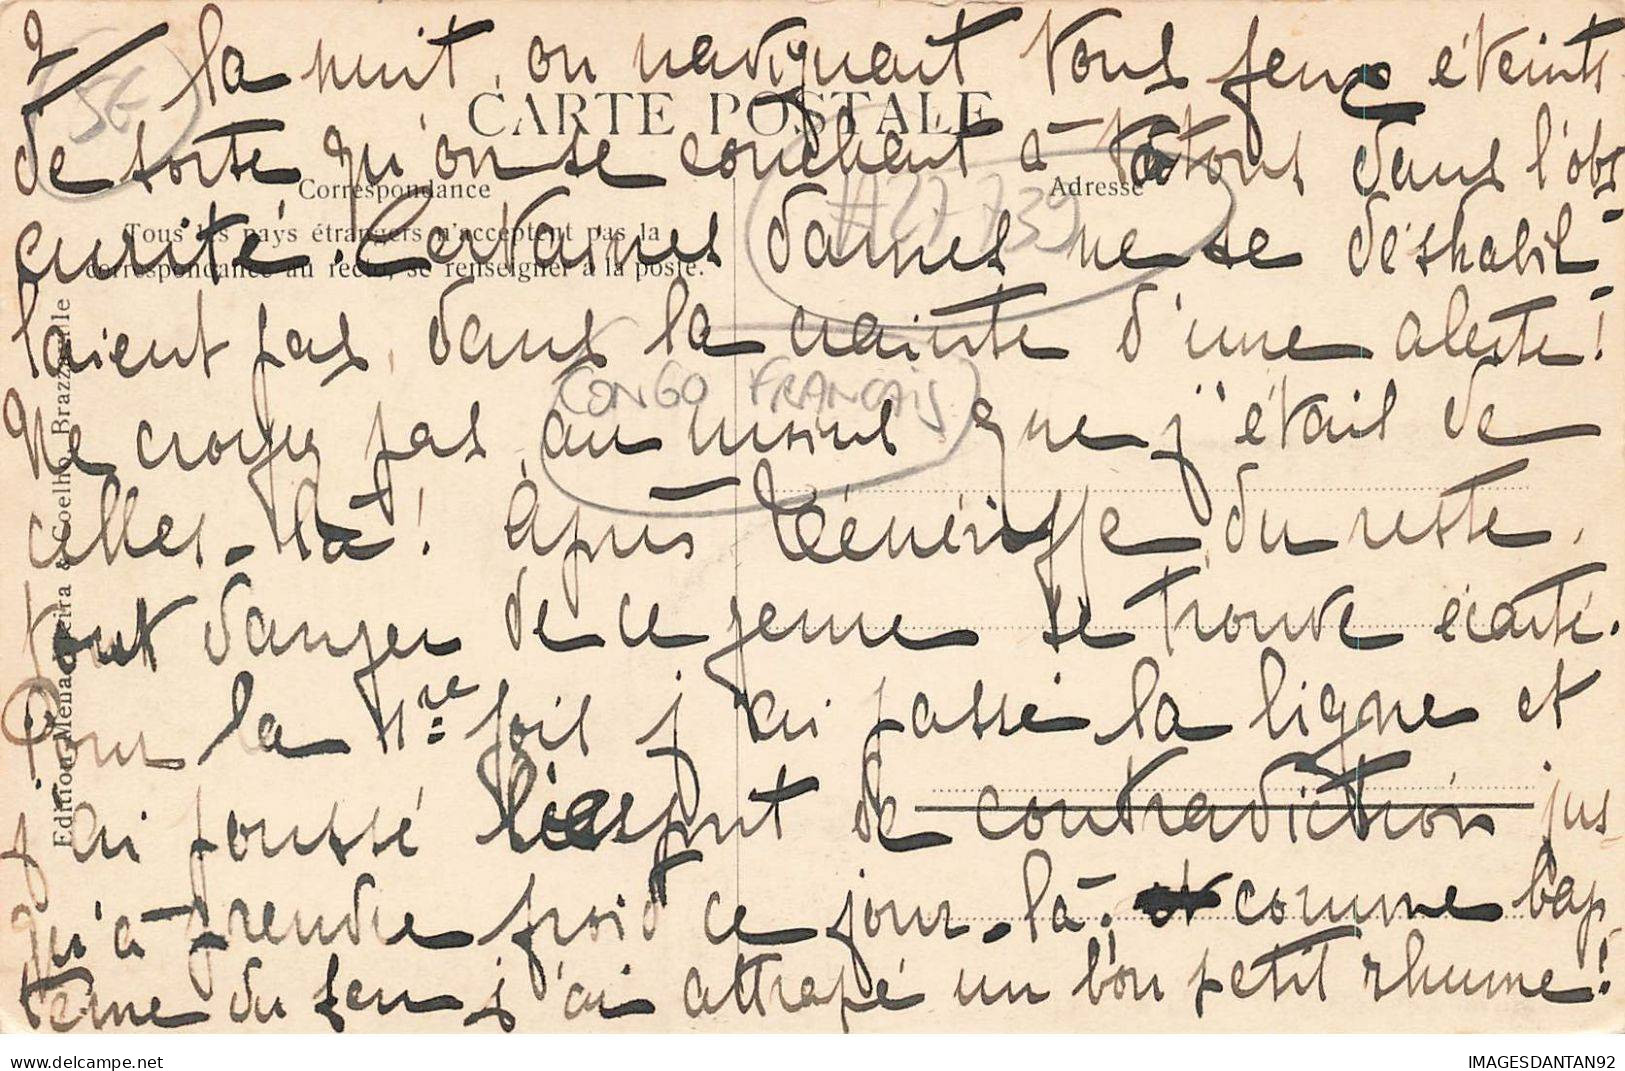 2/ la nuit, on naviguait tous feux éteints
5E
CARTE POSTALE
de sorte qu'on se couchait à tâtons dans l'obs
Correspondance
Adresse
#27739
Tous les pays étrangers n'acceptent pas la
correspondance au recto, se renseigner à la poste.
curité. Certaines dames ne se déshabil-
laient pas, dans la crainte d'une alerte!
CONGO FRANCAIS
Ne croyez pas, au moins que j'étais de
celles-là! Après Ténériffe, du reste,
tout danger de ce genre se trouve écarté.
Pour la 1re fois j'ai passé la ligne et
j'ai poussé l'esprit de contradiction jus
qu'à prendre froid ce jour-là; comme bap
tême du feu j'ai attrapé un bon petit rhume!
Edition Menacoreira & Coelho, Brazzaville
IMAGESDANTAN92
delcampe.net